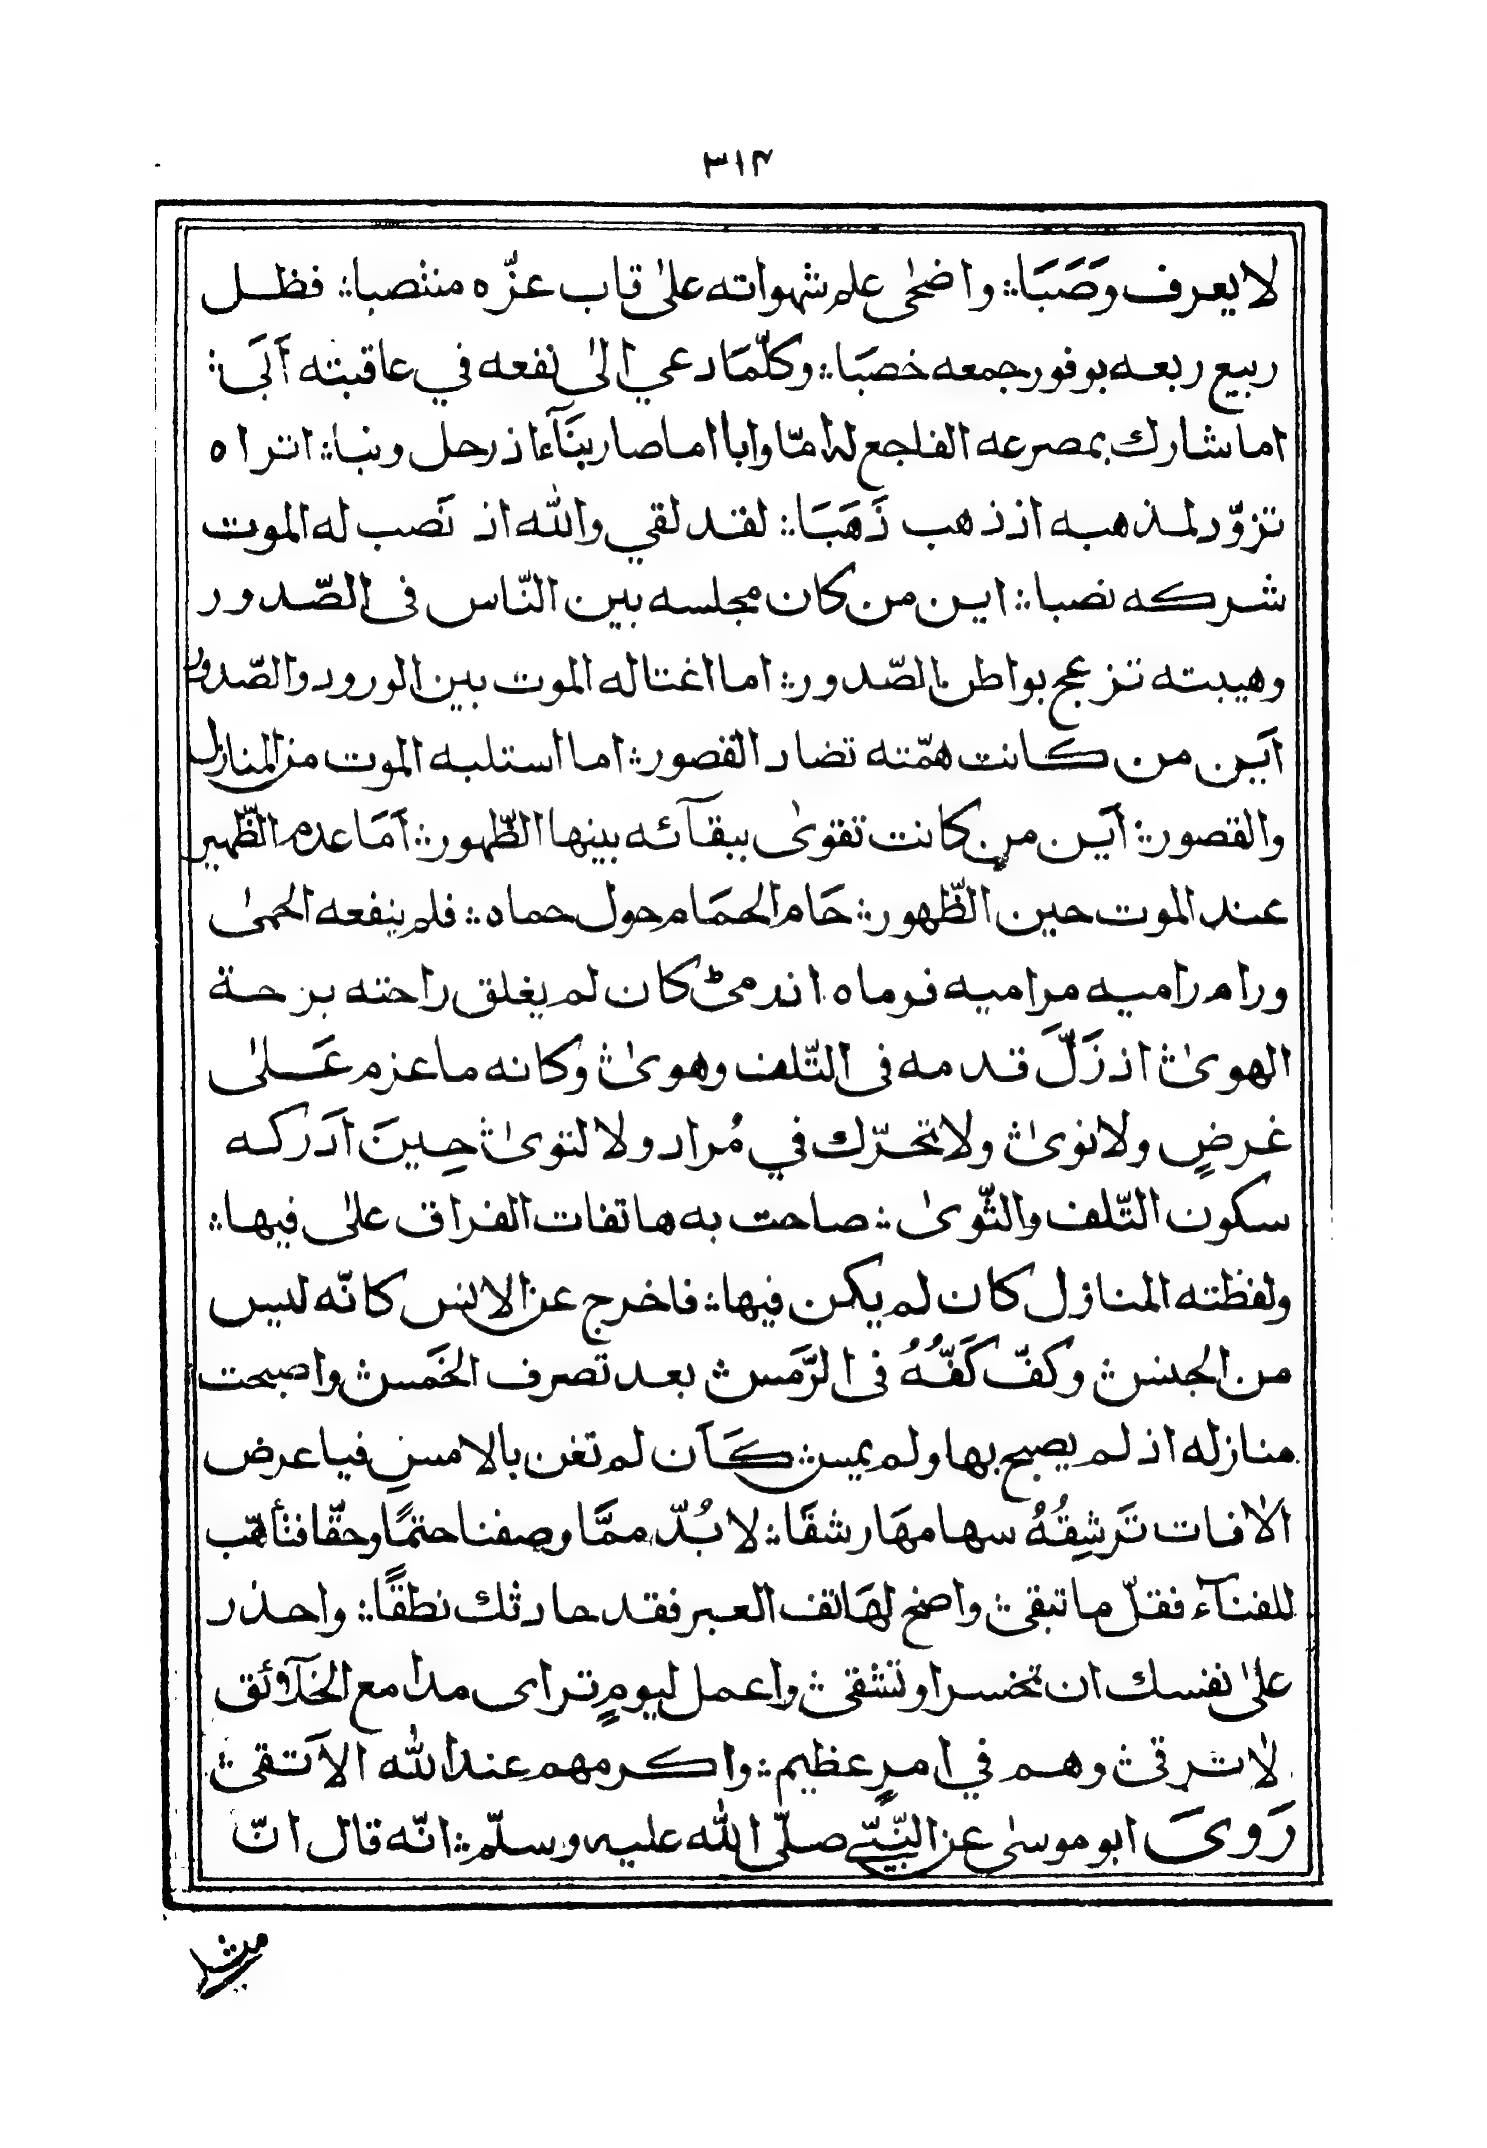 ٣١٤
لا يعرف وصَبَا ؞ واضحٰى علم شهواته علىٰ قاب عزّه منتصبا ؞ فظل
ربيع ربعه بوفور جمعه خصبَا ؞ وكلّمَا دعي الىٰ نفعه في عاقبته أَبَى ؞
اما شارك بمصرعه الفاجع له امّا وابا اما صار بنَآءً اذ رحل ونبا ؞ اتراه
تزوّد لمذهبه اذ ذهب ذَهَبَا ؞ لقد لقي والله اذ نَصب له الموت
شركه نصبا ؞ اين من كان مجلسه بين النّاس فى الصّدور
وهيبته تزعج بواطن الصّدور ؞ اما اغتاله الموت بين الورود والصّدور
اَين من كانت همّته تضاد القصور ؞ اما استلبه الموت من المنازل
والقصور ؞ اَين من كانت تقوىٰ ببقآئه بينها الظّهور ؞ أمَا عدم الظّهير
عند الموت حين الظّهور ؞ حَام الحمَام حول حماه ؞ فلم ينفعه الحمىٰ
ورام راميه مراميه فرماه اذ رمىٰ كان لم يغلق راحته برحة
الهوىٰ ؞ اذ زَلَّ قدمه فى التّلف وهوىٰ ؞ وكانه ما عزم عَلىٰ
غرضٍ ولا نوىٰ ؞ ولا تحرّك في مُراد ولا لتوىٰ ؞ حِينَ اَدْركه
سكون التّلف والثّوىٰ ؞ صاحت به هاتفات الفراق علىٰ فيها ؞
ولفظته المنازل كان لم يكن فيها ؞ فاخرج عن الانس كانّه ليس
من الجنس ؞ وكفّ كَفُّهُ فى الرَّمس ؞ بعد تصرف الخَمس ؞ واصبحت
منازله اذ لم يصبح بها ولم يمس ؞ كَاَن لم تغن بالامسِ فيا عرض
الاٰفات تَرشِقُهُ سهامهَا رشقَا ؞ لا بُدّ ممَّا وصفنا حتمًا وحقّا فتأهّب
للفنآء فقلّ ما تبقىٰ ؞ واصخ لهَاتف العبر فقد حادثك نطقًا ؞ واحذر
علىٰ نفسك ان تخسر او تشقىٰ ؞ واعمل ليومٍ ترا اى مدامع الخلآئق
لاٰ ترقىٰ ؞ وهم في امرٍ عظيم ؞ واكرمهم عند الله الاَتقىٰ ؞
رَوىَ ابو موسىٰ عن النّبيّ صلّى الله عليه وسلّم ؞ انّه قال انّ